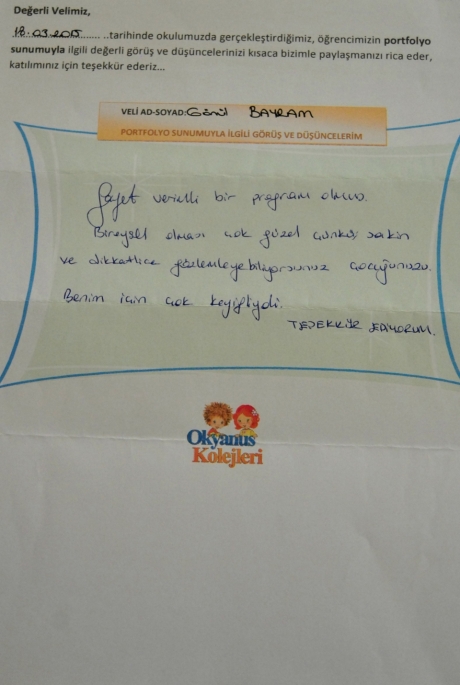 Değerli Velimiz,
18.03.2015........ ..tarihinde okulumuzda gerçekleştirdiğimiz, öğrencimizin portfolyo
sunumuyla ilgili değerli görüş ve düşüncelerinizi kısaca bizimle paylaşmanızı rica eder,
katılımınız için teşekkür ederiz...
VELİ AD-SOYAD:Gönül BAYRAM
PORTFOLYO SUNUMUYLA İLGİLİ GÖRÜŞ VE DÜŞÜNCELERİM
Gayet verimli bir program olmuş.
Bireysel olması çok güzel çünkü sakin
ve dikkatlice gözlemleyebiliyorsunuz çocuğunuzu.
Benim için çok keyifliydi.
TEŞEKKÜR EDİYORUM.
Okyanus
Kolejleri